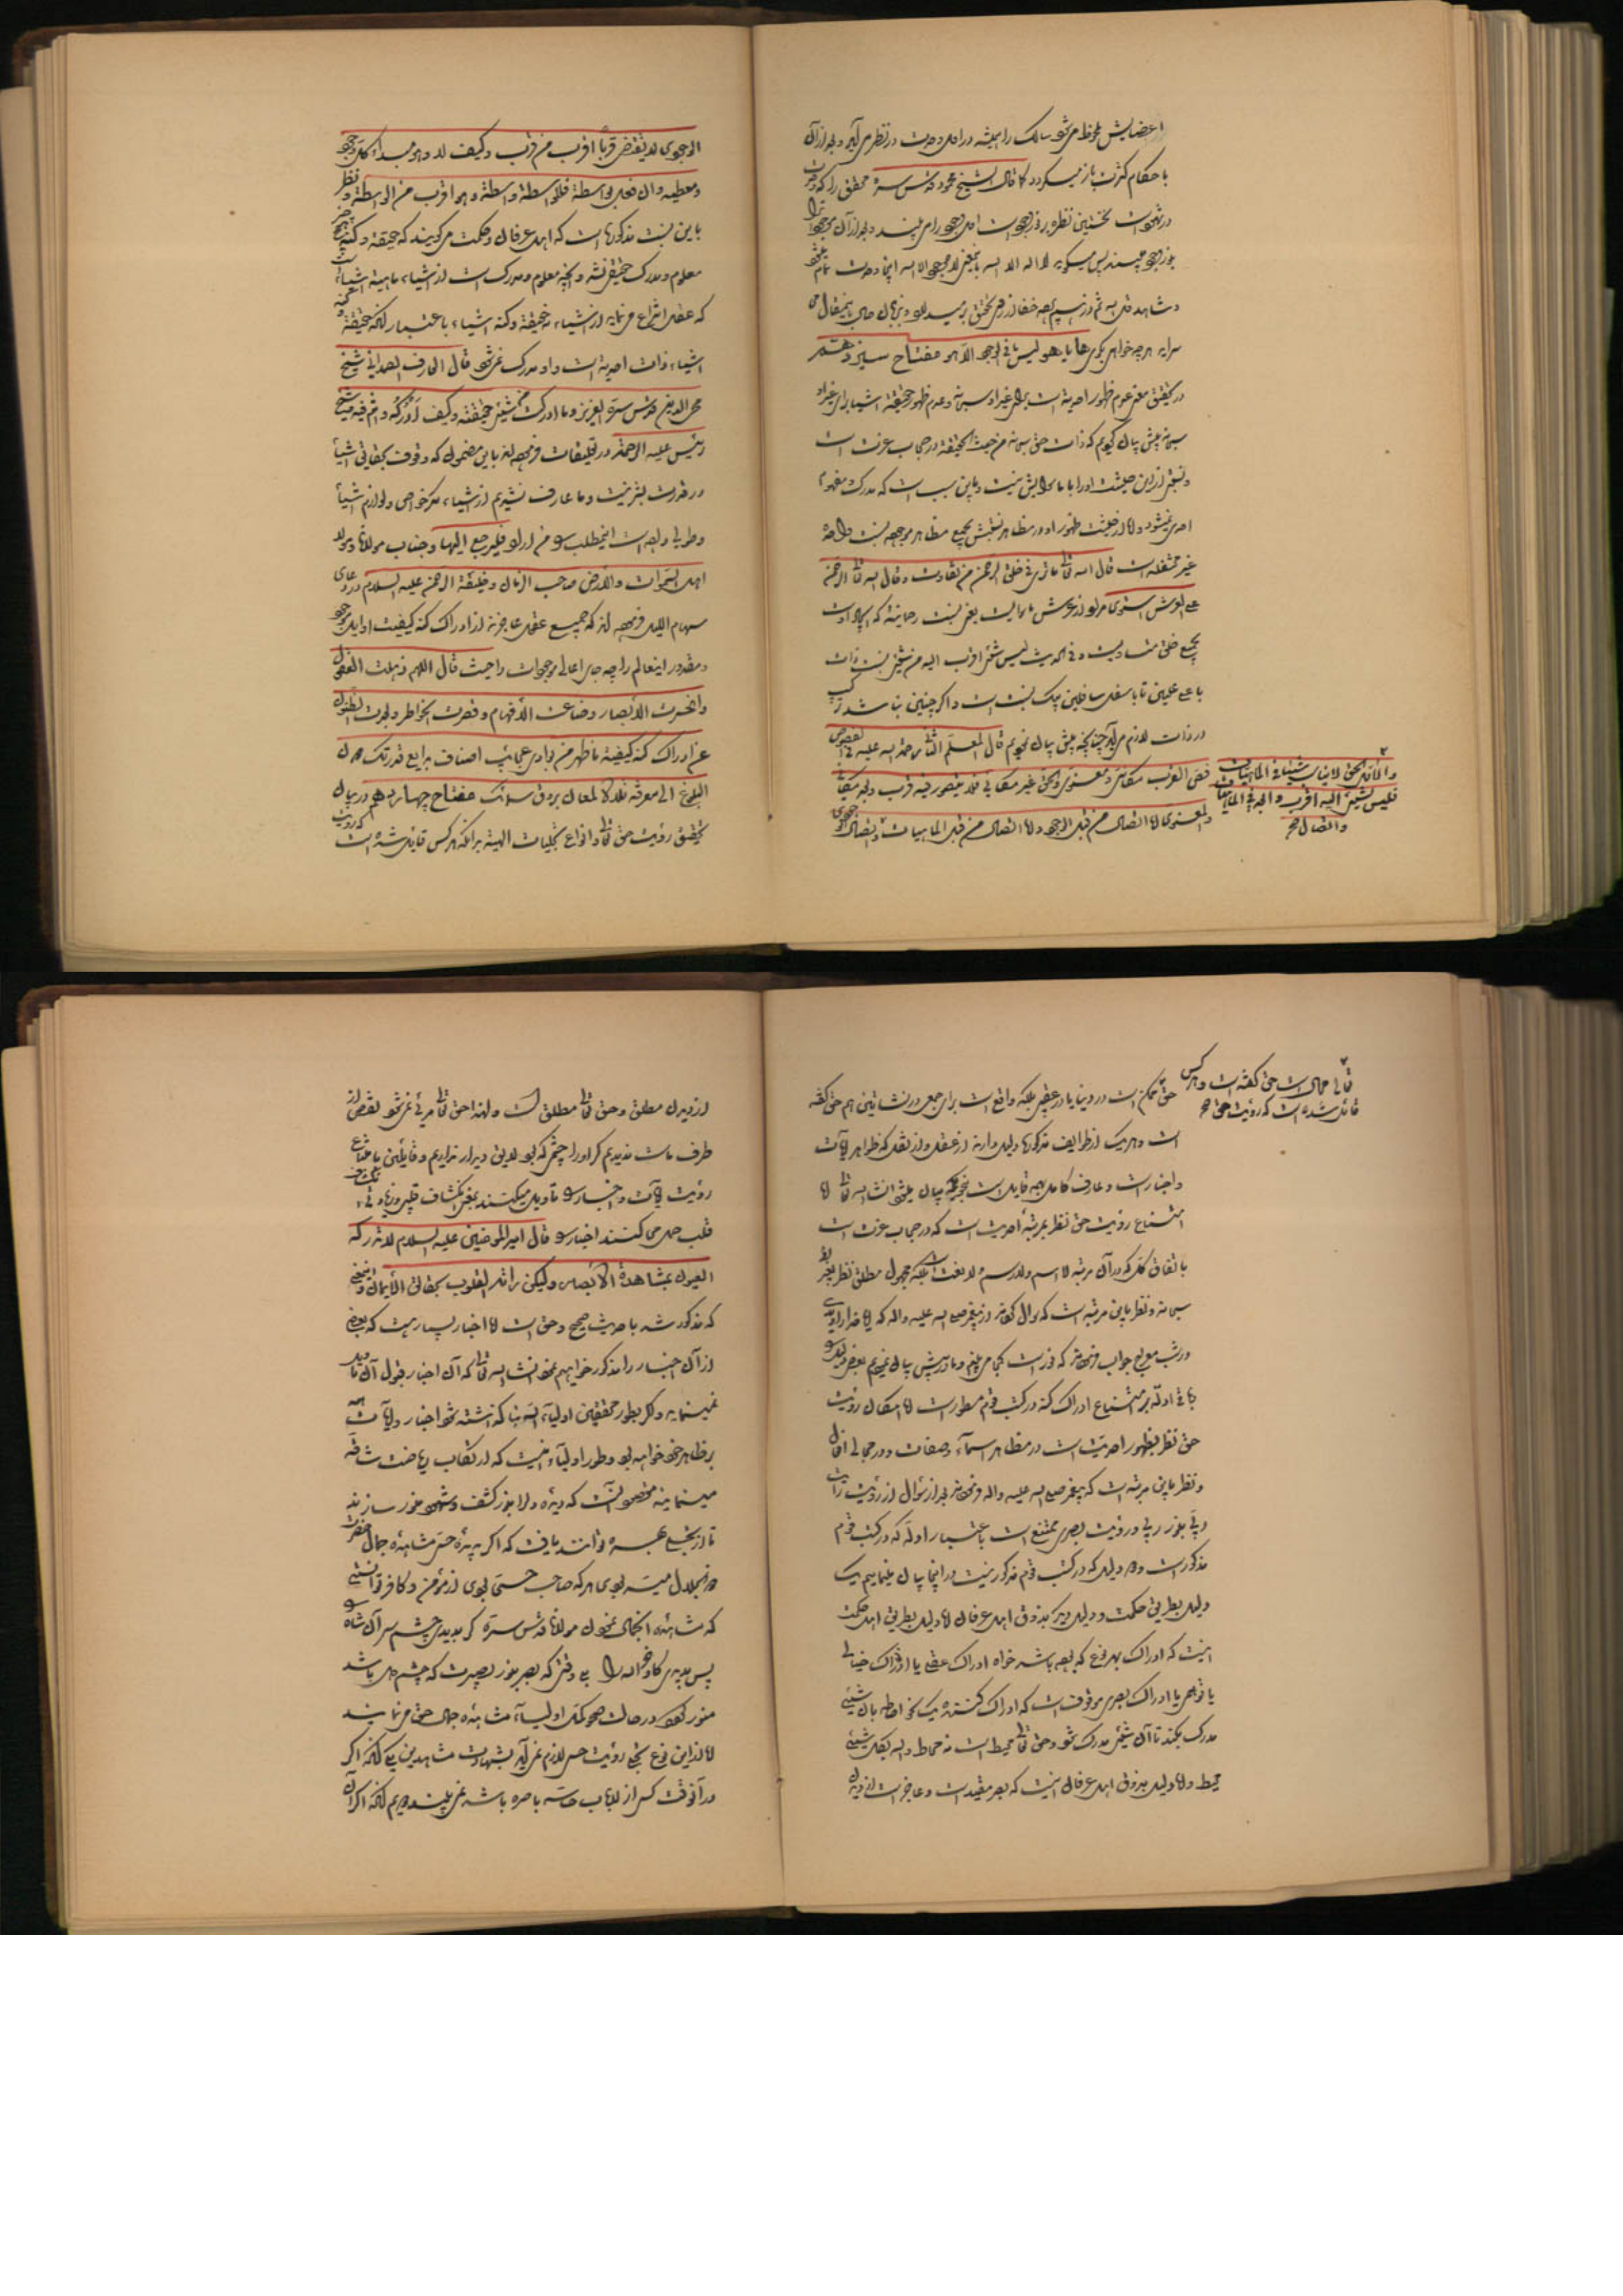 اعضایش ملحوظ می‌شو سالک را همیشه در اول وحدت در نظر می‌آید و بعد از آن
با حکام کثرت باز میگردد کما قال الشیخ محمود قدس سره محقق را که وحدت
در شهود است نخستین نظره بر نور وجود است
بجز وجود
پس میگوید لا اله الا الله یعنی لا موجود الا الله اینجا وحدت تمام
و شاهد
سراید هر چه خواهی گوی ها یا هو لیس فی الوجود الا هو مفتاح سیزدهم
در تحقیق معنی عدم ظهور احدیت است برای غیر او سبحانه و عدم ظهور حقیقة اشیا برای غیر او
سبحانه پیش بیان کردیم که ذات حق سبحانه من حیث الحقیقة در حجاب عزت است
و نسبتی از این حیثیت او را با ما سوایش نیست و باین سبب است که مدرک و مفهوم
احدی نمیشود و اما از حیثیت ظهور او در مظاهر نسبتش بجمیع مظاهر موجوده نسبت واحده
غیر مختلفه است قال الله تعالی ما تری فی خلق الرحمن من تفاوت و قال الله تعالی الرحمن
علی العرش استوی مراد از عرش ماسوا است یعنی نسبت رحمانیة که ایجاد است
بجمیع خلق متساویست و فی الحدیث لیس شیء اقرب الیه من شیء نسبت ذات
با اعلی علیین تا باسفل سافلین یک نسبت است و اگر چنین نباشد ترکیب
در ذات لازم می‌آید چنانچه پیش بیان نمودیم قال المعلم الثانی رحمة الله علیه فی الفصوص
فص القرب مکانی و معنوی و الحق غیر مکانی فلا یتصور فیه قرب و بعد مکانی
و المعنوی اما اتصال من قبل الوجود و اما اتصال من قبل الماهیات و اتصال الوجود
و الاول الحق لا یناسب شیئا فی الماهیات
فلیس لشیء الیه اقرب و ابعد فی الماهیات
و اتصال صح
الوجودی لا یقتضی قربا اقرب من قربه و کیف لا و هو مبدأ کل وجود
و معطیه و ان فعل بواسطة فللواسطة واسطة و هو اقرب من الواسطة و نظر
باین نسبت مذکوره است که اهل عرفان و حکمت میگویند که حقیقة و کنه هیچ چیز
معلوم و مدرک حقیقی نشد و آنچه معلوم و مدرک است از اشیاء ماهیة اشیاء است
که عقل انتزاع می‌نماید از اشیاء نه حقیقة و کنه اشیاء باعتبار آنکه حقیقة و کنه
اشیاء ذات احدیة است و او مدرک نمی‌شود قال العارف الصمدانی شیخ
محی الدین قدس سره العزیز و ما ادرک من شیء حقیقته و کیف ادرکه و انتم فیه شیخ
رئیس علیه الرحمة در تعلیقات فرموده‌اند باین مضمون که وقوف بحقایق اشیا
در قدرت بشر نیست و ما عارف نشدیم از اشیاء مگر خواص و لوازم اشیا
و طویل
من اراد فلیرجع الیها و جناب مولانا و مولا
اهل السموات و الارض صاحب الزمان و خلیفة الرحمن علیه السلام در دعای
سهام اللیل فرموده‌اند که جمیع عقول عاجزند از ادراک کنه کیفیت
و مقدور اینعالم را چه جای اعالی موجودات را حیث قال اللهم ذهلت العقول
و انحسرت الابصار و ضاعت الافهام و قصرت الخواطر و بعدت الظنون
عن ادراک کنه کیفیة ما ظهر من بوادی عجائب اصناف بدایع قدرتک دون
البلوغ الی معرفة تلألؤ لمعان بروق سمائک مفتاح چهاردهم در بیان
تحقیق رؤیت حق تعالی و انواع تجلیات الهیة بدانکه هر کس قائل شده است که رؤیت
تعالی محال است حق گفته است و هر کس
قائل شده است که رؤیت حق صح
حق ممکن است در دنیا یا در عقبی بلکه واقع است برای جمعی در نشأتین هم حق گفته
است و هر یک از طوایف مذکوره دلیل دارند از عقل و از نقل که ظواهر آیات
و اخبار است و عارف کامل بهمه قایل است بنحویکه بیان میشود انشا الله تعالی اما
امتناع رؤیت حق نظر بمرتبه احدیت است که در حجاب عزت است
باتفاق کل که در آن مرتبه لا اسم و لا رسم و لا نعت است بلکه مجهول مطلق نظر بغیر
سبحانه و نظر باین مرتبه است که سؤال کردند از پیغمبر صلی الله علیه و اله که آیا خدا را دیدی
در شب معراج جواب فرمودند که نور است کجا می‌بینم و ما در پیش بیان نمودیم بعضی
باقی ادله بر امتناع ادراک کنه در کتب قوم مسطور است اما امکان رؤیت
حق نظر بظهور احدیت است در مظاهر اسماء و صفات و در مجالی افعال
و نظر باین مرتبه است که پیغمبر صلی الله علیه و اله فرمودند بعد از سؤال از رؤیت رأیت
ربی بنور ربی و رؤیت بصری ممتنع است باعتبار ادله که در کتب قوم
مذکور است و دو دلیل که در کتب قوم مذکور نیست در اینجا بیان مینماییم یک
دلیل بطریق حکمت و دلیل دیگر بذوق اهل عرفان اما دلیل بطریق اهل حکمت
اینست که ادراک بهر نوع که بوده باشد خواه ادراک عقلی یا ادراک خیالی
یا توهمی یا ادراک بصری موقوف است که ادراک کننده یک نحو احاطه بآن شیء
مدرک بکند تا آن شیء مدرک شود و حق تعالی محیط است نه محاط و الله بکل شیء
محیط و اما دلیل بذوق اهل عرفان اینست که بصر مقید است و عاجز است از دیدن
از دیدن مطلق و حق تعالی مطلق است و لهذا حق تعالی مرئی نمی‌شود
طرف ماست ندیدیم گر او را چشم که بود لایق دیدار نداریم و قایلین بامتناع
رؤیت آیات و اخبار را تأویل میکنند بمعنی انکشاف قلبی
قلب حمل می‌کنند اخبار را قال امیر المؤمنین علیه السلام لا تدرکه
العیون بمشاهدة الابصار ولیکن رأته القلوب بحقائق الایمان و اینمعنی
که مذکور شد با حدیث صحیح و حق است اما اخبار بسیاریست که بعضی
از آن اخبار را مذکور خواهیم نمود انشا الله تعالی که آن اخبار قبول آن تأویل
نمینماید و لکن بطور محققین اولیاء الله بنا گذاشته شود اخبار و آیات همه
بر ظاهر خود خواهد بود و طور اولیاء اینست که ارتکاب ریاضت شاقه
مینمایند مخصوص آنست که دیده دل را بنور کشف و شهود منور سازند
تا از تجلی بهره توانند یافت که اگر بدیده حس مشاهده جمال حضرت
ذو الجلال میسر بودی هر که صاحب حسی بودی از مؤمن و کافر توانستی
که مشاهده آنجمال نمودن مولانا قدس سره گر بدیدی چشم سر آن شاه را
پس بدیدی گاو و خر الله را بلی وقتی که بصر بنور بصیرت که چشم دل باشد
منور گردد در حالت صحو کمّل اولیاء مشاهده جمال حق می‌نمایند
اما از این نوع تجلی رؤیت حسی لازم نمی‌آید بشهادت مشاهدین بلی آنکه اگر
در آنوقت کسی از ارباب حاسه باصره باشد نمی‌بیند دویم آنکه اگر آن